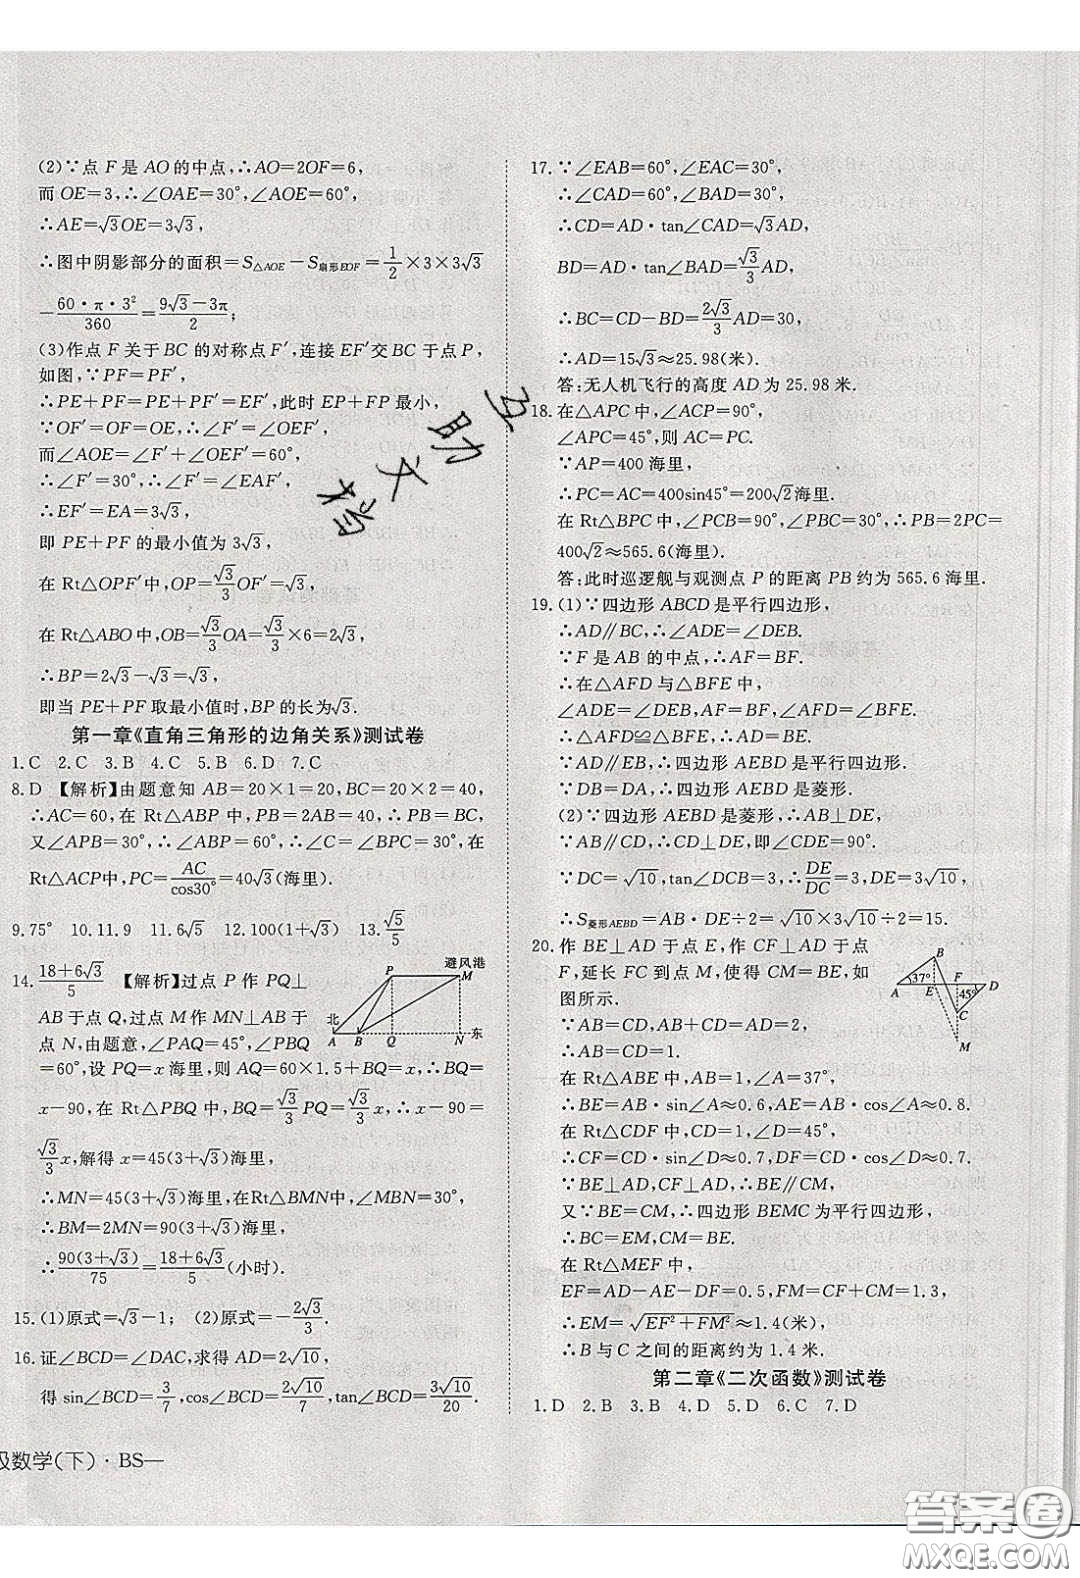 (2)∵点 F 是 AO 的中点,∴AO=2OF=6,
而 OE=3,∴∠OAE=30°,∠AOE=60°,
∴AE=√3OE=3√3,
∴图中阴影部分的面积=S△AOE−S扇形EOF=1/2×3×3√3
−60·π·3²/360=(9√3−3π)/2;
(3)作点 F 关于 BC 的对称点 F′,连接 EF′交 BC 于点 P,
如图,∵PF=PF′,
∴PE+PF=PE+PF′=EF′,此时 EP+FP 最小,
∵OF′=OF=OE,∴∠F′=∠OEF′,
而∠AOE=∠F′+∠OEF′=60°,
∴∠F′=30°,∴∠F′=∠EAF′,
∴EF′=EA=3√3,
即 PE+PF 的最小值为 3√3,
在 Rt△OPF′中,OP=√3/3OF′=√3,
在 Rt△ABO 中,OB=√3/3OA=√3/3×6=2√3,
∴BP=2√3−√3=√3,
即当 PE+PF 取最小值时,BP 的长为√3.
第一章《直角三角形的边角关系》测试卷
1.C 2.C 3.B 4.C 5.B 6.D 7.C
8.D 【解析】由题意知 AB=20×1=20,BC=20×2=40,
∴AC=60,在 Rt△ABP 中,PB=2AB=40,∴PB=BC,
又∠APB=30°,∴∠ABP=60°,∴∠C=∠BPC=30°,在
Rt△ACP中,PC=AC/cos30°=40√3(海里).
9.75° 10.11.9 11.6√5 12.100(1+√3) 13.√5/5
14.(18+6√3)/5 【解析】过点 P 作 PQ⊥
AB 于点 Q,过点 M 作 MN⊥AB 于
点 N,由题意,∠PAQ=45°,∠PBQ
=60°,设 PQ=x 海里,则 AQ=60×1.5+BQ,∴BQ=
x−90,在 Rt△PBQ 中,BQ=√3/3PQ=√3/3x,∴x−90=
√3/3x,解得 x=45(3+√3)海里,
∴MN=45(3+√3)海里,在Rt△BMN中,∠MBN=30°,
∴BM=2MN=90(3+√3)海里,
∴90(3+√3)/75=(18+6√3)/5(小时).
15.(1)原式=√3−1; (2)原式=−2√3/3.
16.证∠BCD=∠DAC,求得 AD=2√10,
得 sin∠BCD=3/7,cos∠BCD=2√10/7,tan∠BCD=3√10/20.
避风港
P
M
北
A B Q N 东
级数学(下)·BS—
17.∵∠EAB=60°,∠EAC=30°,
∴∠CAD=60°,∠BAD=30°,
∴CD=AD·tan∠CAD=√3AD,
BD=AD·tan∠BAD=√3/3AD,
∴BC=CD−BD=2√3/3AD=30,
∴AD=15√3≈25.98(米).
答:无人机飞行的高度 AD 为 25.98 米.
18.在△APC 中,∠ACP=90°,
∠APC=45°,则 AC=PC.
∵AP=400 海里,
∴PC=AC=400sin45°=200√2海里.
在 Rt△BPC 中,∠PCB=90°,∠PBC=30°,∴PB=2PC=
400√2≈565.6(海里).
答:此时巡逻舰与观测点 P 的距离 PB 约为 565.6 海里.
19.(1)∵四边形 ABCD 是平行四边形,
∴AD∥BC,∴∠ADE=∠DEB.
∵F 是 AB 的中点,∴AF=BF.
∴在△AFD 与△BFE 中,
∠ADE=∠DEB,∠AFD=∠BFE,AF=BF,
∴△AFD≌△BFE,∴AD=EB.
∵AD∥EB,∴四边形 AEBD 是平行四边形.
∵DB=DA,∴四边形 AEBD 是菱形.
(2)∵四边形 AEBD 是菱形,∴AB⊥DE,
∵AB∥CD,∴CD⊥DE,即∠CDE=90°.
∵DC=√10,tan∠DCB=3,∴DE/DC=3,DE=3√10,
∴S菱形AEBD=AB·DE÷2=√10×3√10÷2=15.
20.作 BE⊥AD 于点 E,作 CF⊥AD 于点
F,延长 FC到点 M,使得 CM=BE,如
图所示.
∵AB=CD,AB+CD=AD=2,
∴AB=CD=1.
在 Rt△ABE 中,AB=1,∠A=37°,
∴BE=AB·sin∠A≈0.6,AE=AB·cos∠A≈0.8.
在 Rt△CDF 中,CD=1,∠D=45°,
∴CF=CD·sin∠D≈0.7,DF=CD·cos∠D≈0.7.
∵BE⊥AD,CF⊥AD,∴BE∥CM,
又∵BE=CM,∴四边形 BEMC 为平行四边形,
∴BC=EM,CM=BE.
在 Rt△MEF 中,
EF=AD−AE−DF=0.5,FM=CF+CM=1.3,
∴EM=√(EF²+FM²)≈1.4(米),
∴B 与 C 之间的距离约为 1.4 米.
B
A 37° E F D
45°
C
M
第二章《二次函数》测试卷
1.D 2.B 3.B 4.D 5.D 6.C 7.D
答案卷
MXQE.COM